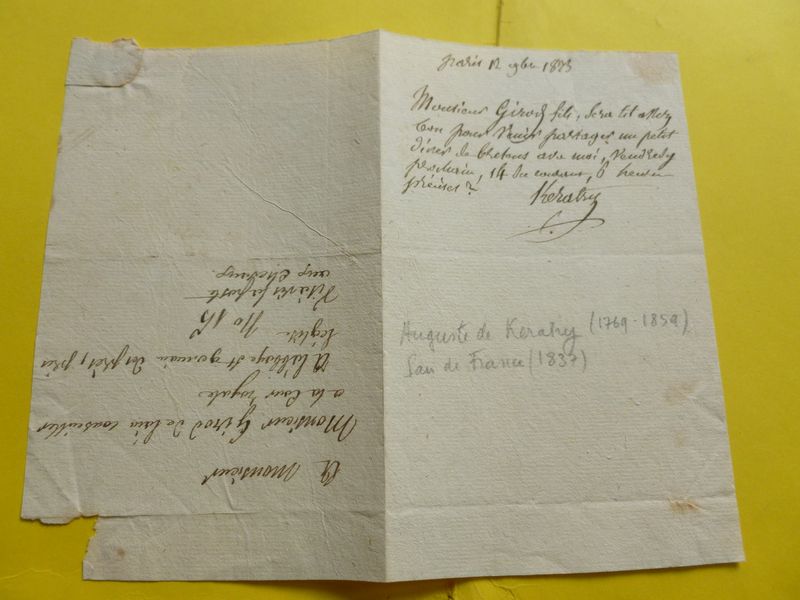 paris 12 9bre 1823
Monsieur Girod fils, Sera-t-il assez
bon pour Venir partager un petit
diner de bretons avec moi, Vendredy
prochain, 14 du courant, 6 heures
précises?
Keratry
Auguste de Keratry (1769-1859)
Pair de France (1837)
A Monsieur
Monsieur Girod de l'ain conseiller
a la Cour royale
A l'abbaye St germain des prés, près
l'église No 15